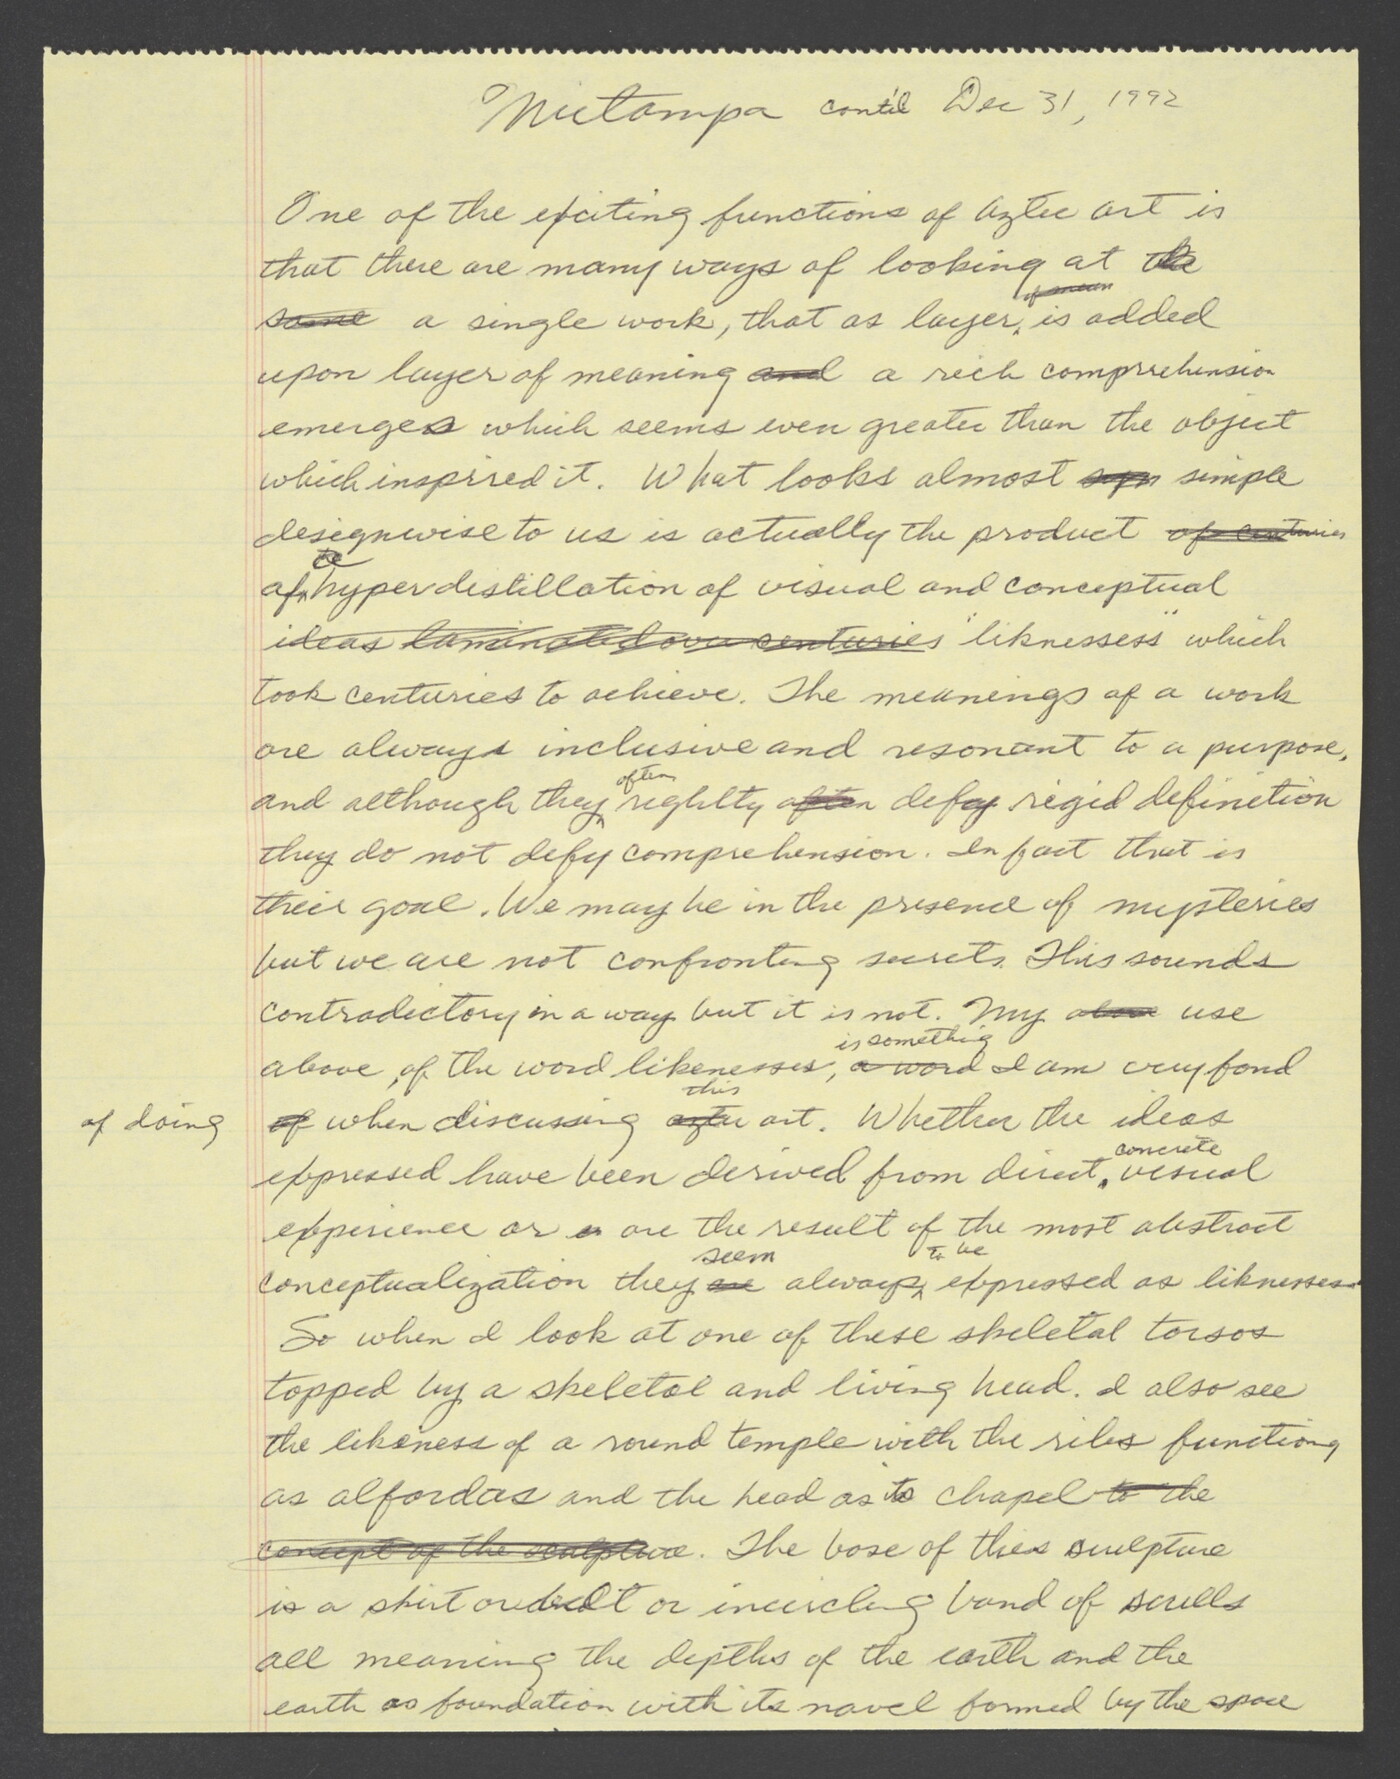 Mictampa cont'd Dec 31, 1992
One of the exciting functions of Aztec art is
that there are many ways of looking at the
same a single work, that as layer of mean is added
upon layer of meaning and a rich comprrehension
emerges which seems even greater than the object
which inspired it. What looks almost simple
designwise to us is actually the product of centuries
of the hyper distillation of visual and conceptual
ideas laminated over centuries "liknessess" which
took centuries to achieve. The meanings of a work
are always inclusive and resonant to a purpose,
and although they often rightly often defy rigid definition
they do not defy comprehension. In fact that is
their goal. We may be in the presence of mysteries
but we are not confronting secrets. This sounds
contradictory in a way but it is not. My above use
above, of the word likenesses, is something a word I am very fond
of doing of when discussing this aztec art. Whether the ideas
expressed have been derived from direct, concrete visual
experience or are the result of the most abstract
conceptualization they seem are always to be expressed as liknesses.
So when I look at one of these skeletal torsos
topped by a skeletal and living head. I also see
the likeness of a round temple with the ribs functiong
as alfordas and the head as its chapel to the
concept of the sculpture. The base of this sculpture
is a skirt or belt or incircling band of scrulls
all meaning the depths of the earth and the
earth as foundation with its navel formed by the space